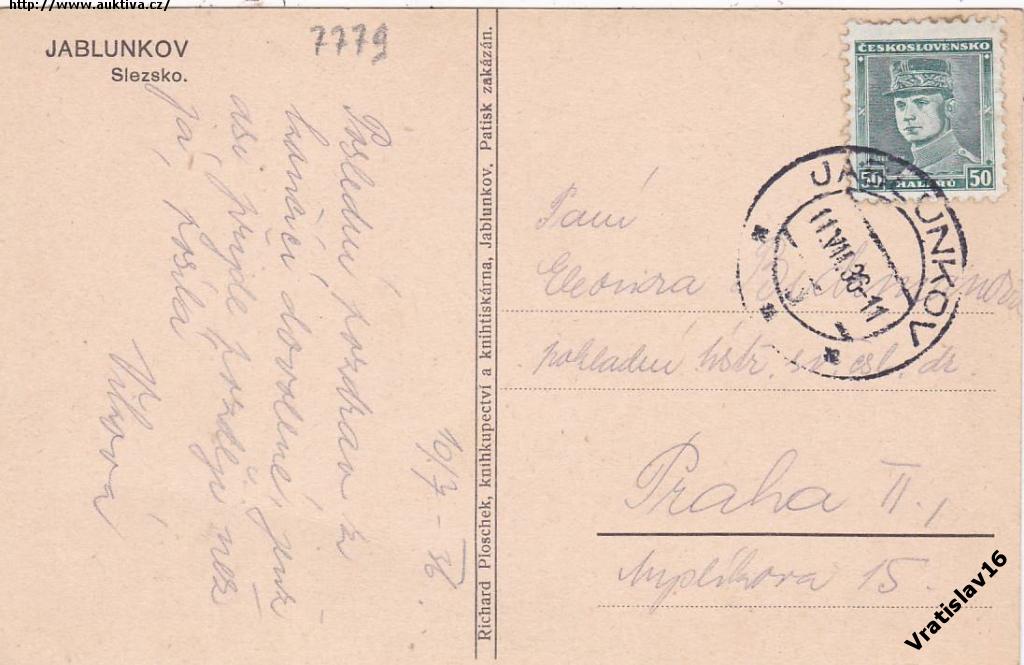 http://www.auktiva.cz/
JABLUNKOV
Slezsko.
7779
Poslední pozdrav z
končící dovolené, jinak
asi přijde později než
já, posílá
Vlková
10/7 - 36.
Richard Pioschek, knihkupectví a knihtiskárna, Jablunkov. Patisk zakázán.
ČESKOSLOVENSKO
50 HALÉŘŮ 50
JABLUNKOV
11.VII.36-11
Paní
Eleonora
pokladní
Praha II.,
15.
Vratislav16